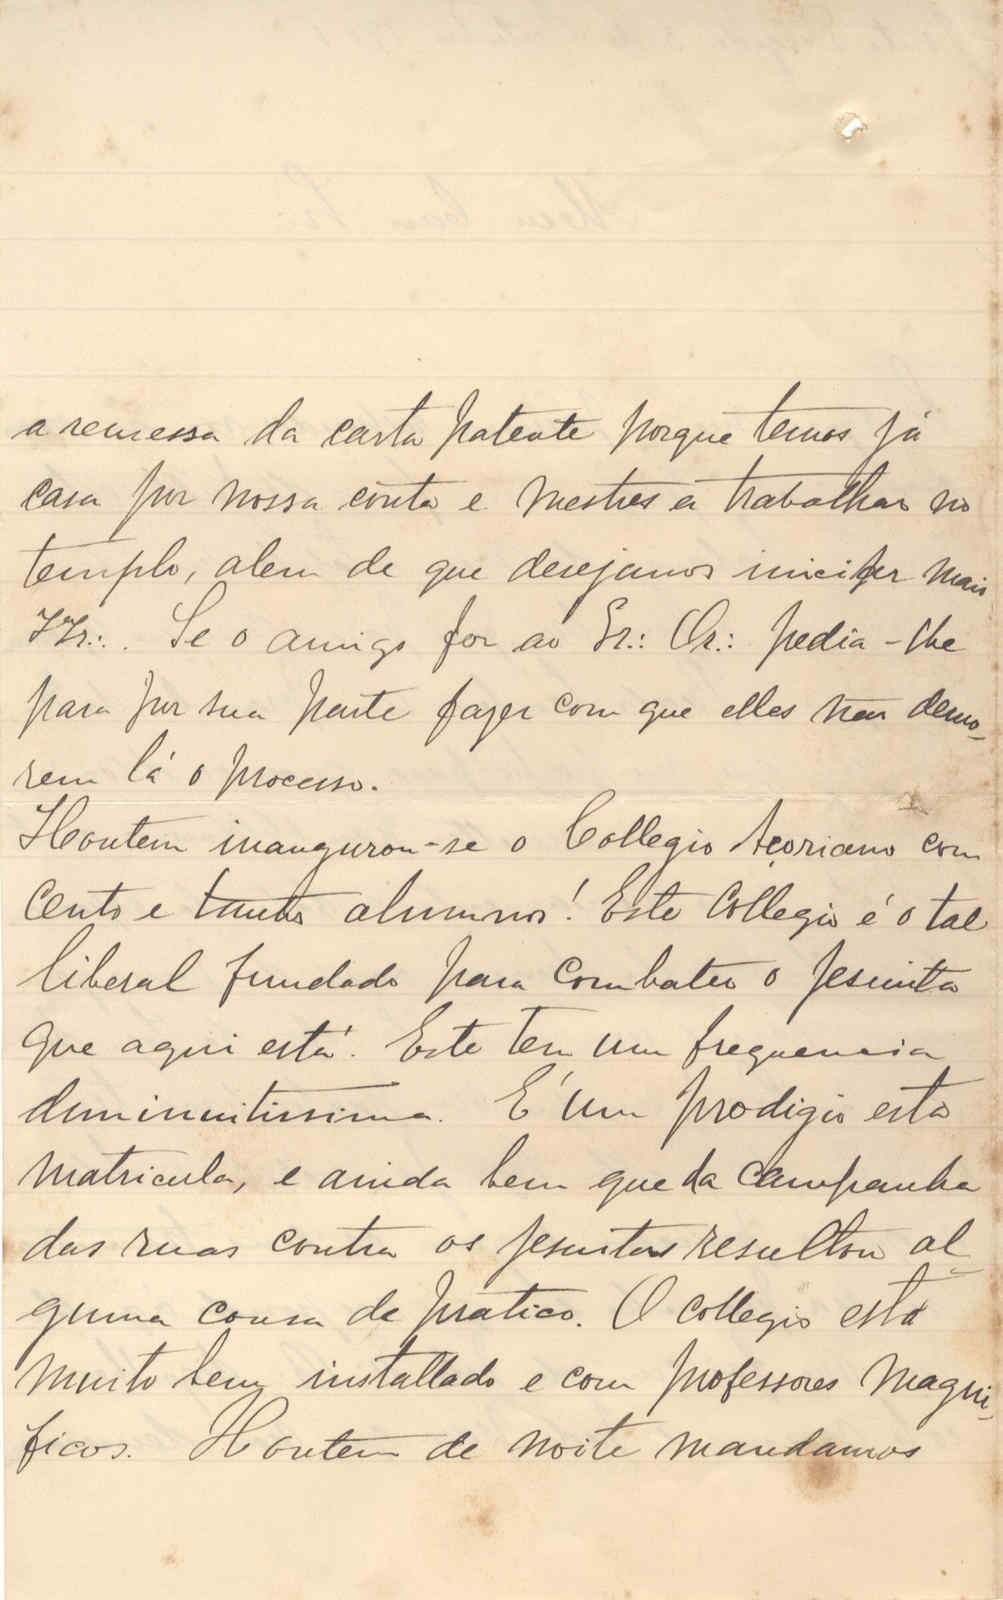 a remessa da carta patente porque temos já
casa por nossa conta e mestres a trabalhar no
templo, alem de que desejamos iniciar mais
IIr∴. Se o amigo for ao Gr∴ Or∴ pedia-lhe
para por sua parte fazer com que elles não demo-
rem lá o processo.
Hontem inaugurou-se o Collegio Açoriano com
cento e tantos alumnos! Este Collegio é o tal
liberal fundado para combater o jesuita
que aqui está. Este tem um frequencia
deminuitissima. É um prodigio esta
matricula, e ainda bem que da campanha
das ruas contra os jesuitas resultou al-
guma cousa de pratico. O collegio está
muito bem installado e com professores magni-
ficos. Hontem de noite mandamos